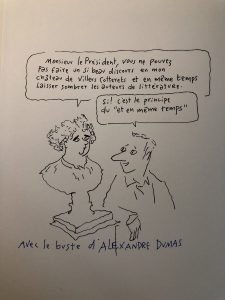 Monsieur le Président, vous ne pouvez
Pas faire un si beau discours en mon
château de Villers Cotterets et en même temps
Laisser sombrer les auteurs de littérature.
Si! c'est le principe
du "et en même temps"
Avec le buste d'ALEXANDRE DUMAS